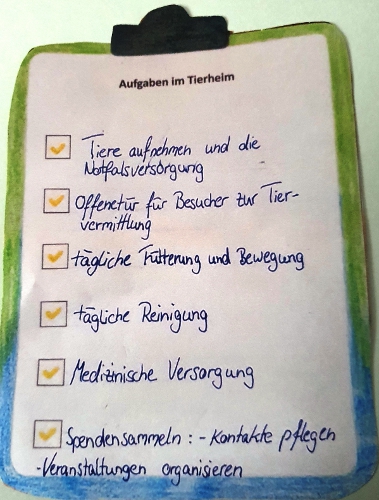 Aufgaben im Tierheim
Tiere aufnehmen und die
Notfallsversorgung
Offenetür für Besucher zur Tier-
vermittlung
tägliche Fütterung und Bewegung
tägliche Reinigung
Medizinische Versorgung
Spendensammeln: - Kontakte pflegen
-Veranstaltungen organisieren